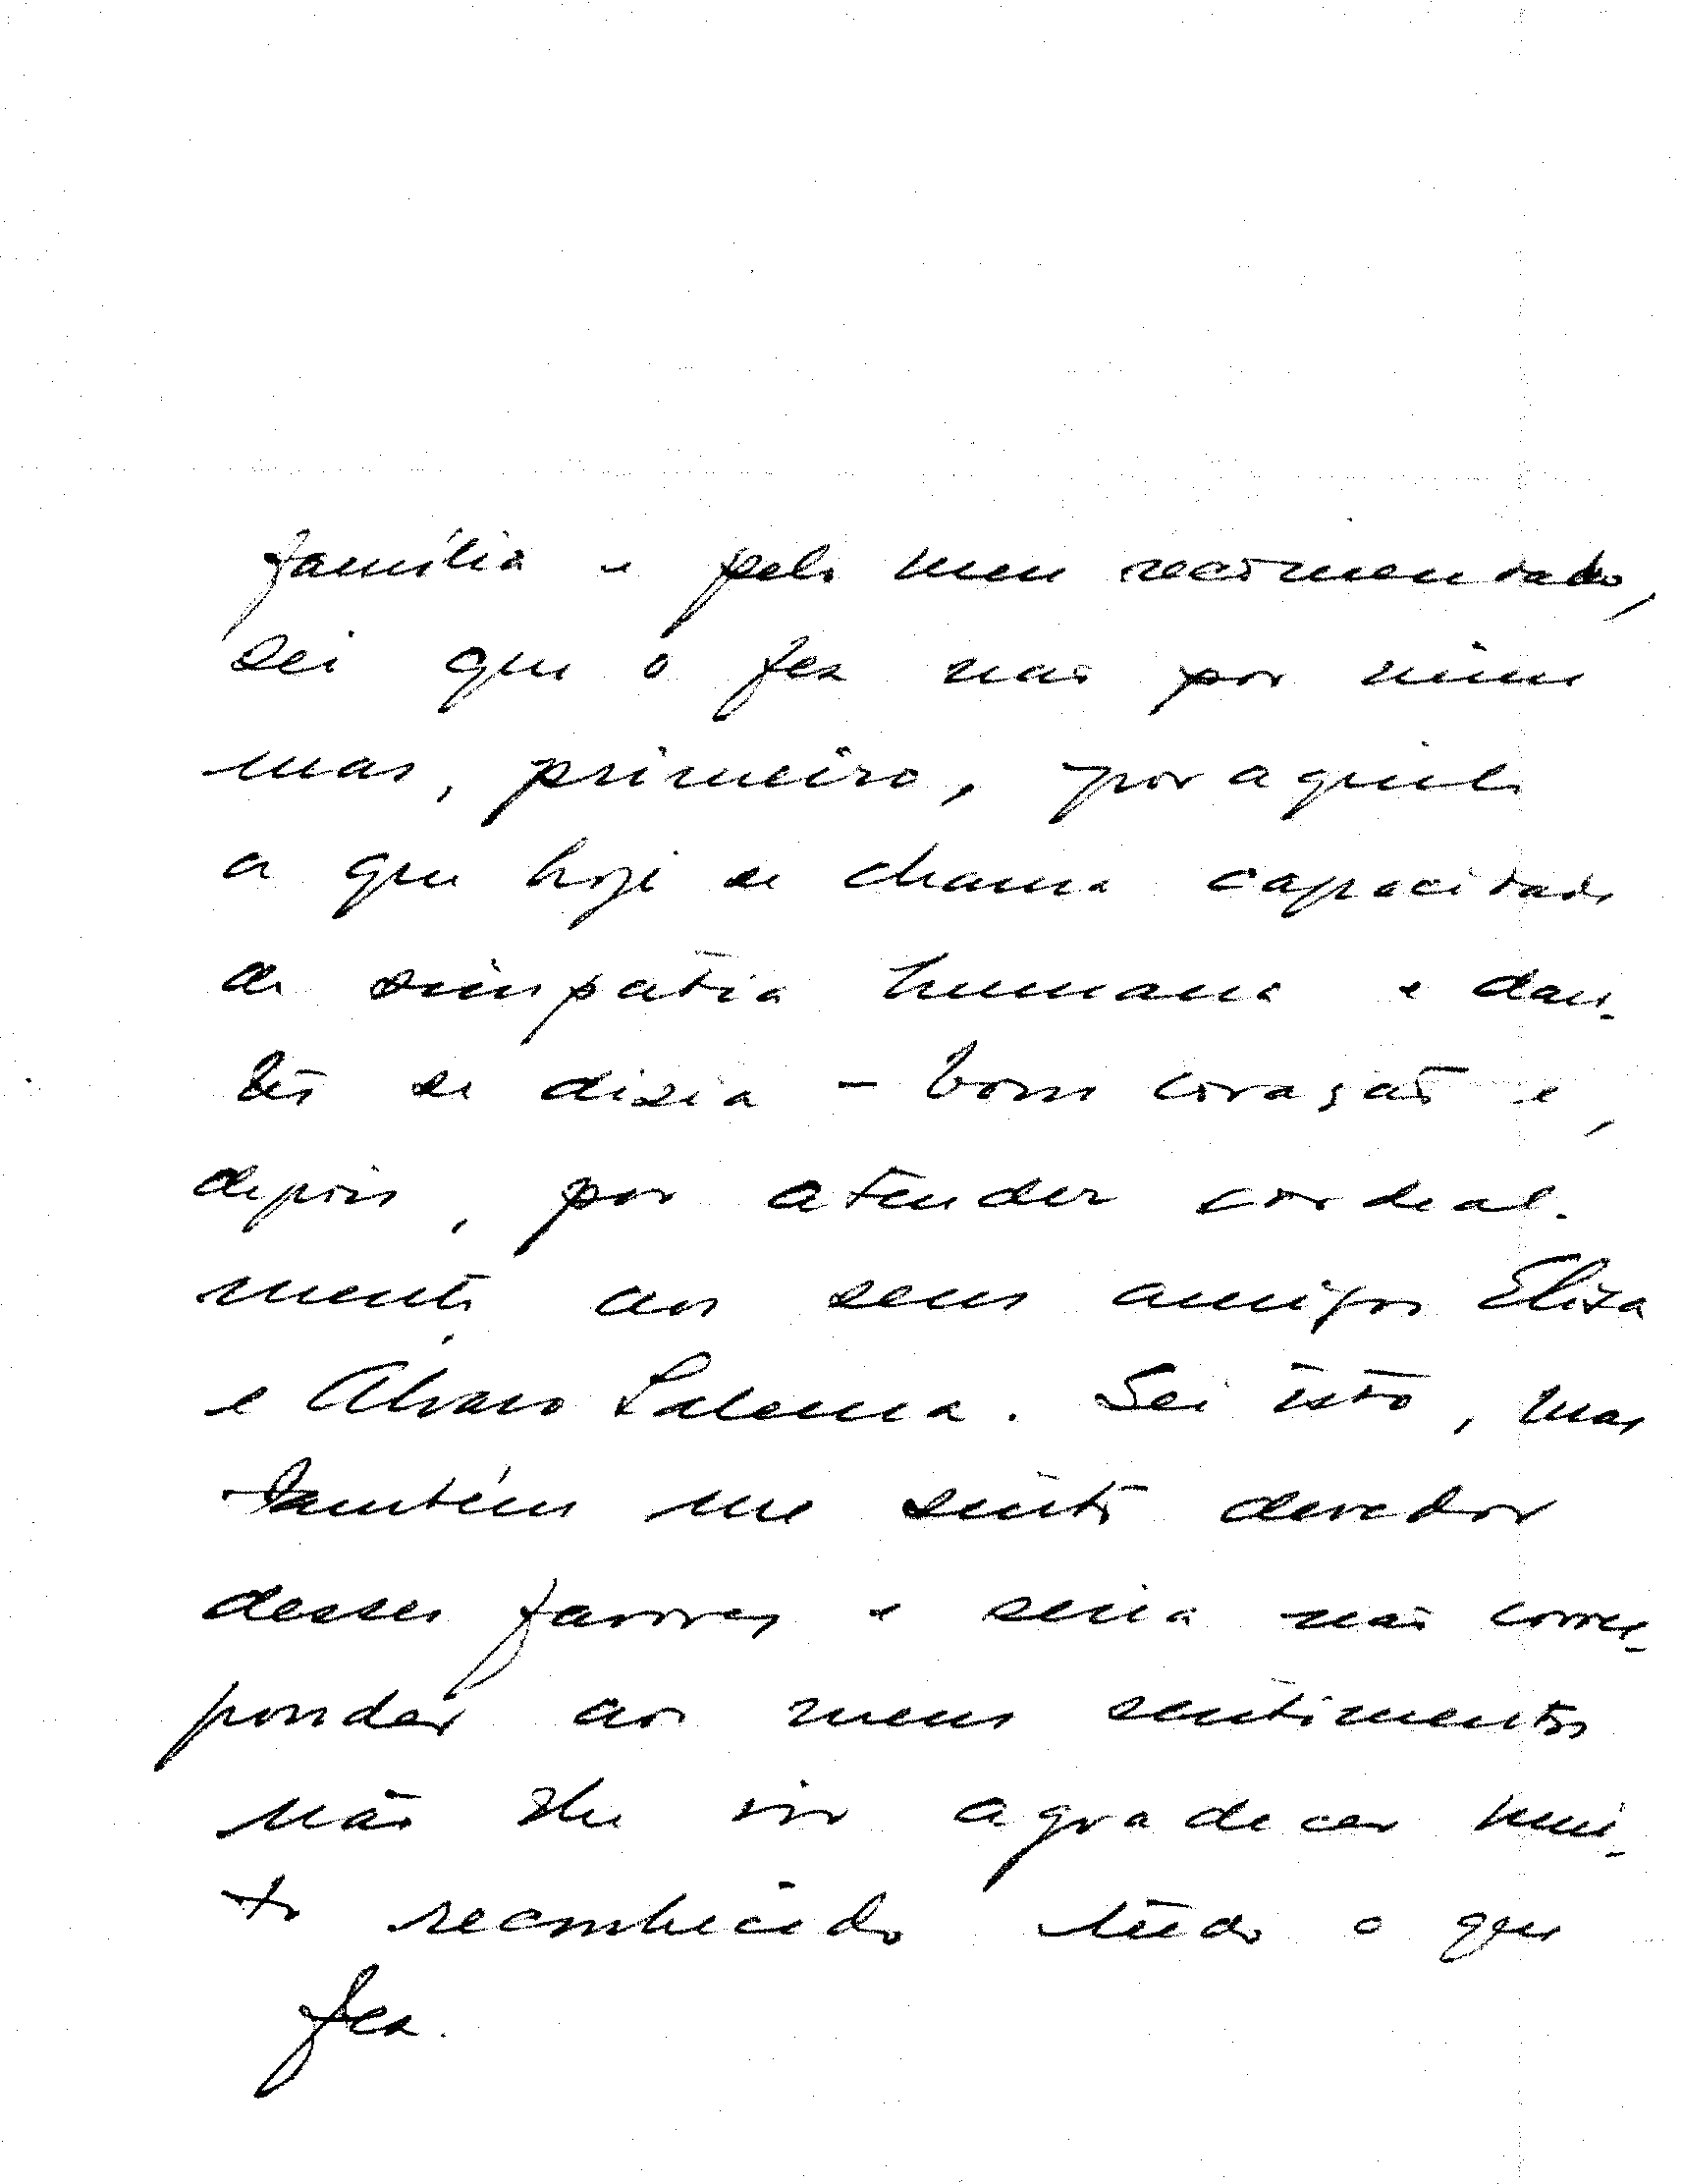 família e pelo meu recomendado,
sei que o fez não por mim
mas, primeiro, por aquilo
a que hoje se chama capacidade
de simpatia humana e dan-
tes se dizia - bom coração e,
depois, por atender cordeal-
mente aos seus amigos Elisa
e Alvaro Salema. Sei isto, mas
também me sinto devedor
desses favores e seria não corres-
ponder aos meus sentimentos
não lhe vir agradecer mui-
to reconhecido tudo o que
fez.